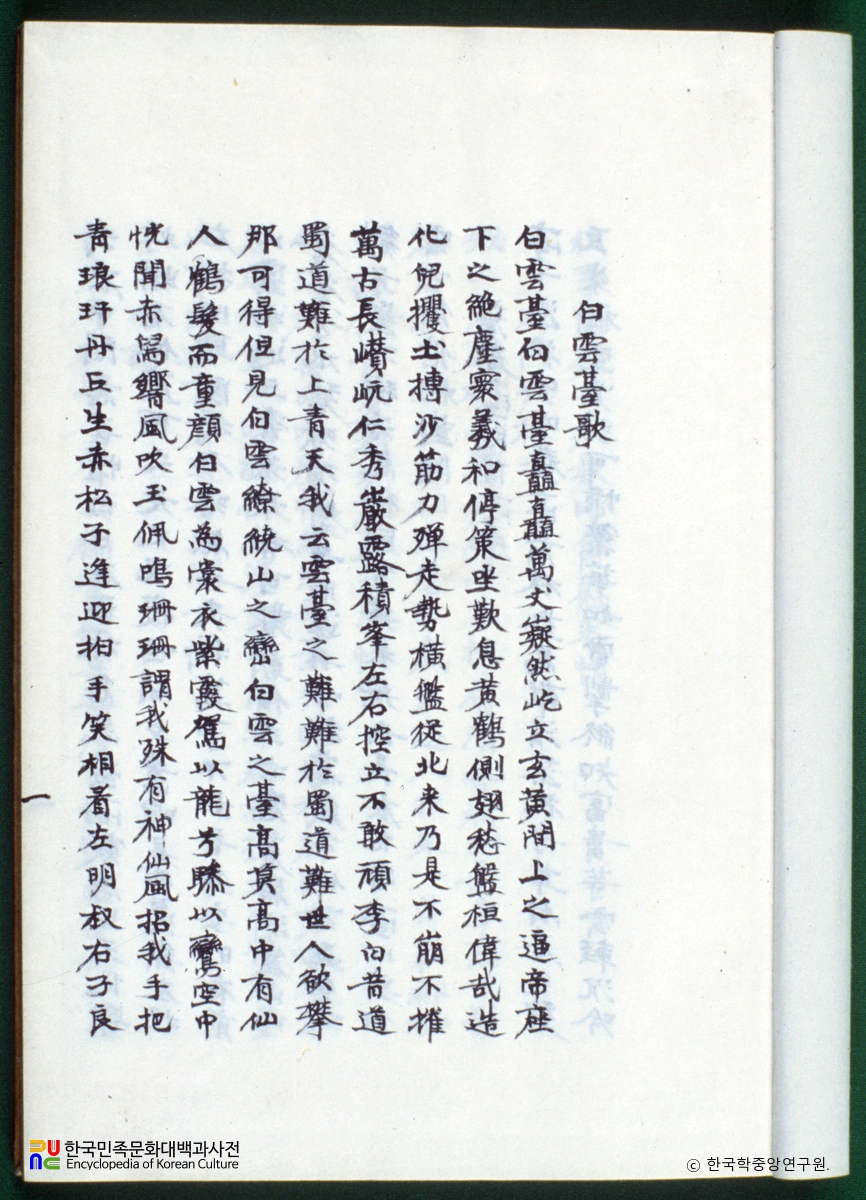 白雲臺歌
白雲臺白雲臺矗矗萬丈嶷然屹立玄黃間上之逼帝座
下之絶塵寰羲和停策坐歎息黃鶴側翅愁盤桓偉哉造
化兒攫土搏沙筋力殫走勢橫艦從北來乃是不崩不摧
萬古長巑岏仁秀巖露積峯左右控立不敢頑李白昔道
蜀道難於上青天我云雲臺之難難於蜀道難世人欲攀
那可得但見白雲繚繞山之巒白雲之臺高莫高中有仙
人鶴髮而童顔白雲為裳衣紫霞駕以龍兮驂以鸞空中
恍聞赤舄響風吹玉佩鳴珊珊謂我殊有神仙風招我手把
靑琅玕丹丘生赤松子逢迎拍手笑相看左明叔右子良
一
한국민족문화대백과사전
Encyclopedia of Korean Culture
ⓒ 한국학중앙연구원.